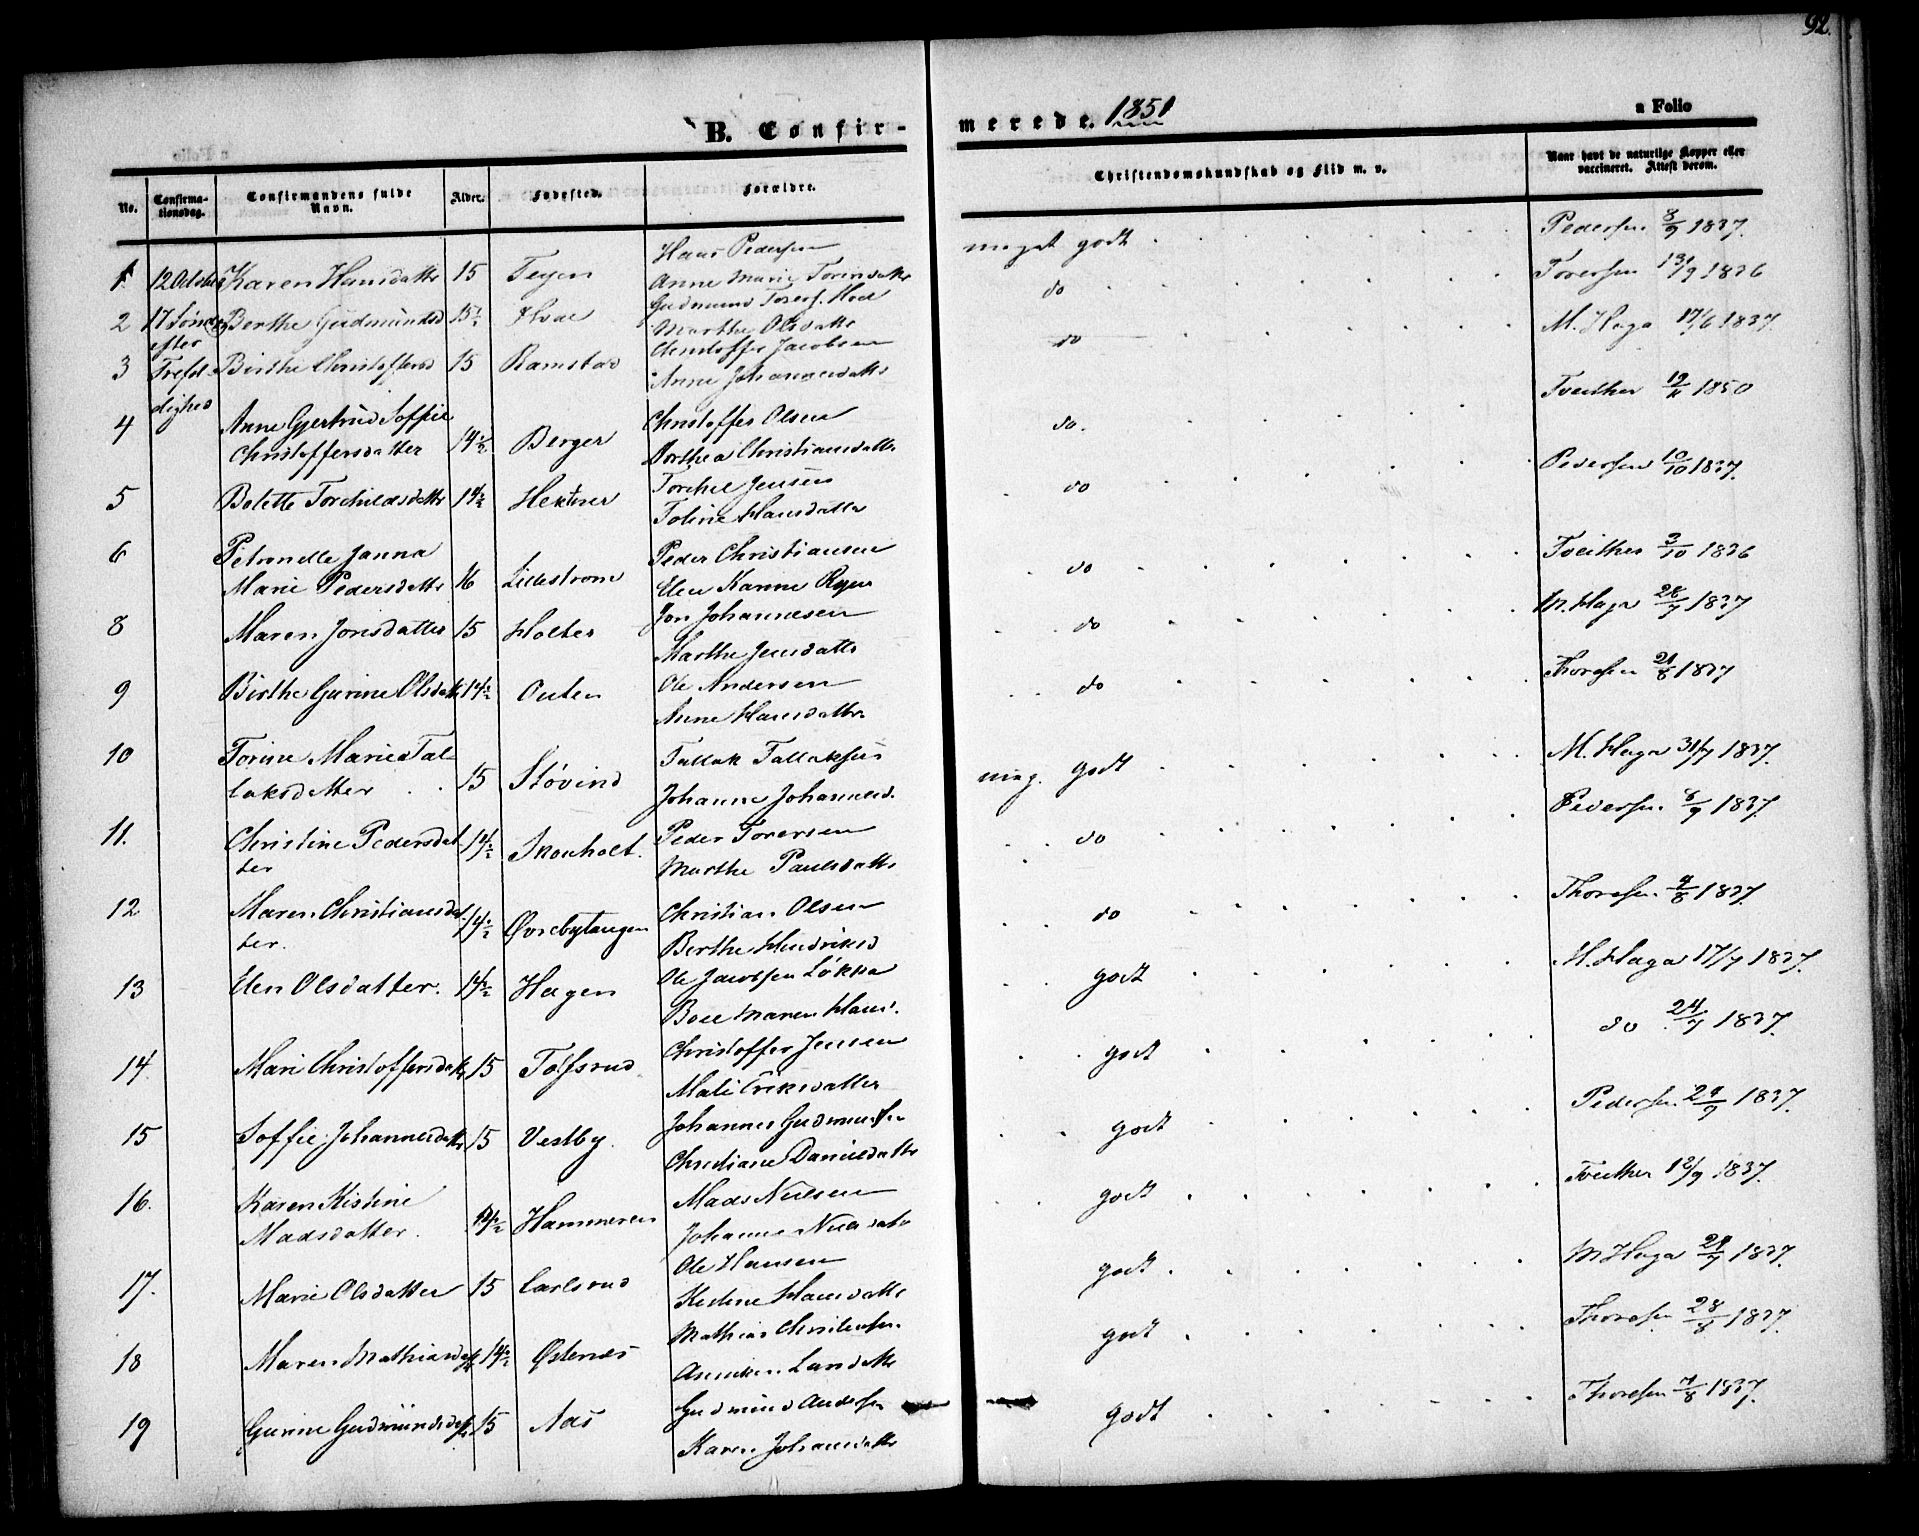 92.
B. Confir-
merede. 1851
n Folio
No.
Confirma-
tionsdag.
Confirmandens fulde
Navn.
Alder.
Fødested.
Forældre.
Christendomskundskab og Flid m. v.
Naar havt de naturlige Kopper eller
vaccineret. Attest derom.
1 12 October Karen Hansdatter 15 Teyen Hans Pedersen meget godt Pedersen 8/9 1837.
Anne Marie Torersdatter
2 17 Søndag Berthe Gudmundsd 15 1/2 Gudmund Torers. do Toversen 13/9 1836
efter Marthe Olsdatter
3 Trefol- Birthe Christoffersd 15 Ramstad Christoffer Jacobsen do M. Haga 17/6 1837.
dighed Anne Johannesdatter
4 Anne Gjertrud Soffie Christoffer Olsen do. Tveither 19/11 1850
Christoffersdatter 14 1/2 Berger Dorthea Christiansdatter
5 Bolette Torchildsdatter 14 1/2 Hektner Torchil Jensen do Pedersen 10/10 1837.
Toline Hansdatter
6 Petronelle Janna Peder Christiansen do Tveither 3/10 1836
Marie Pedersdatter 16 Lillestrøm Elen Karine Ryen
8 Maren Jonsdatter 15 Holter Jon Johannesen do M. Haga 28/7 1837
Marthe Jensdatter
9 Birthe Gurine Olsdatter 14 1/2 Outen Ole Andersen do Thoresen 21/8 1837
Anne Hansdatter
10 Torine Marie Tal- Tallak Tallaksen meg. godt M. Haga 31/7 1837.
laksdatter 15 Støvind Johanne Johannesd.
11. Christine Pedersdat- 14 1/2 Skouholt. Peder Toversen do Pedersen. 8/9 1837.
ter Marthe Paulsdatter
12 Maren Christiansdat- 14 1/2 Øvrebytangen Christian Olsen do Thoresen. 4/8 1837.
ter. Berthe Hendriksd
13 Elen Olsdatter. 14 1/2 Hagen Ole Jacobsen Løkka godt M. Haga 17/7 1837.
Boel Maren Hans.
14. Mari Christoffersdatter 15 Tolfsrud Christoffer Jensen godt do 24/7 1837.
Mali Eriksdatter
15 Soffie Johannesdatter 15 Vestby. Johannes Gudmundsen godt Pedersen. 29/9 1837.
Christiane Danielsdatter
16. Karen Kistine Mads Nielsen godt Tveither 12/9 1837.
Madsdatter. 14 1/2 Hammeren Johanne Nielsdatter
17. Marie Olsdatter 15 Carlsrud Ole Hansen godt M Haga 28/7 1837.
Kistine Hansdatter
18 Maren Mathiasdatter 14 1/2 Østenæs Mathias Christensen. godt Thoresen 28/8 1837.
Anniken Larsdatter
19 Gurine Gudmundsdatter 15 Aas Gudmund Andersen godt Thoresen 7/8 1837.
Karen Johansdatter